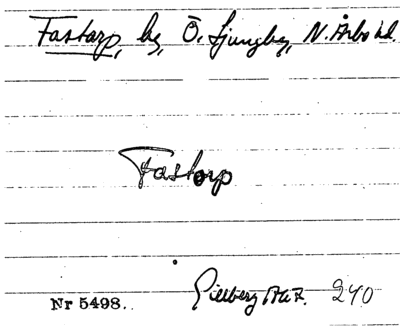 Fastarp, by, Ö. Ljungby, N. Åsbo hd.
Fastarp
Nr 5498. Gillberg 240